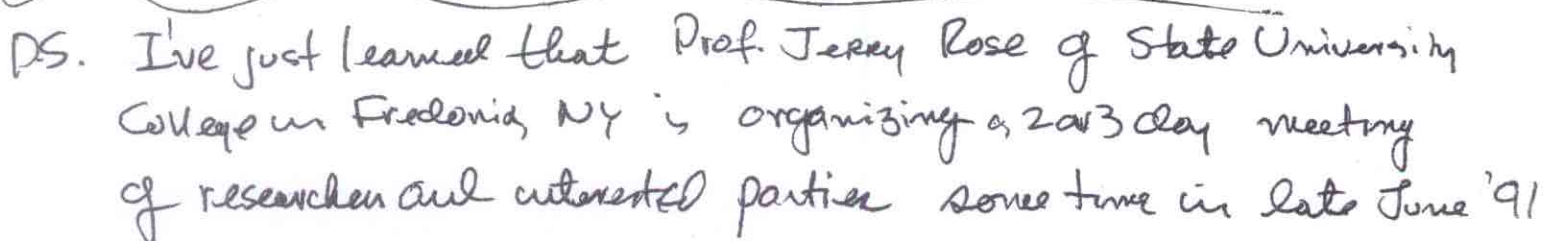 PS. I've just learned that Prof. Jerry Rose of State University
College in Fredonia, NY is organizing a 2 or 3 day meeting
of researchers and interested parties some time in late June '91